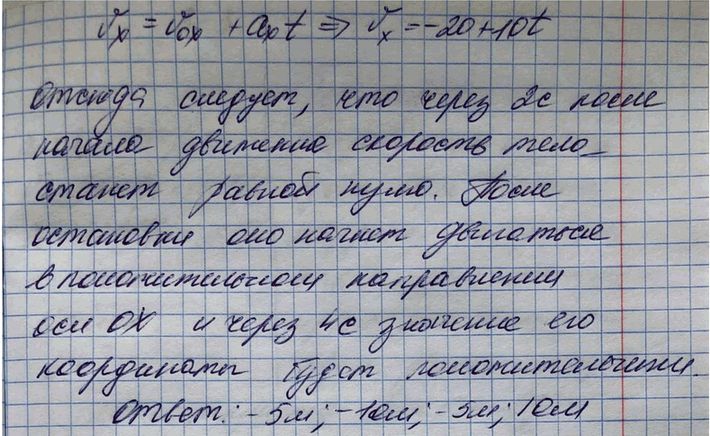 υₓ = υ₀ₓ + aₓt ⇒ υₓ = -20 + 10t
Отсюда следует, что через 2с после
начала движения скорость тело
станет равной нулю. После
остановки оно начнет двигаться
в положительном направлении
оси OX и через 4с значение его
координаты будет положительным.
Ответ: -5м; -10м; -5м; 10м